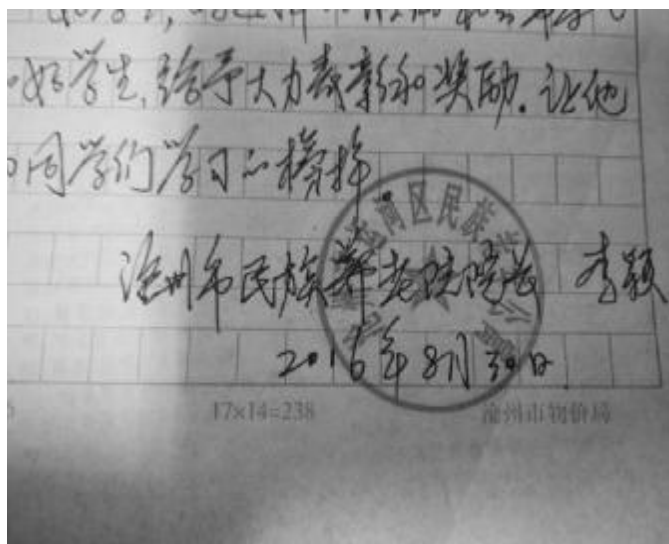 好学生,给予大力表彰和奖励.让他
同学们学习的榜样
沧州市民族养老院院长 李颖
2016年8月30日
17×14=238 沧州市物价局
河区民族养